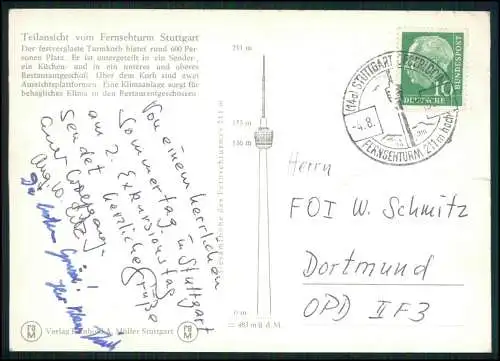 Teilansicht vom Fernsehturm Stuttgart
Der festverglaste Turmkorb bietet rund 600 Per-
sonen Platz. Er ist untergeteilt in ein Sender-,
ein Küchen- und in ein unteres und oberes
Restaurantgeschoß. Über dem Korb sind zwei
Aussichtsplattformen. Eine Klimaanlage sorgt für
behagliches Klima in den Restaurantgeschossen.
Von einem herrlichen
Sommertag in Stuttgart
am 2. Exkursionstag
sendet herzliche Grüße
Wolfgang
211 m
175 m
136 m
Gesamthöhe des Fernsehturmes 211 m
0 m
= 483 m ü. d. M.
Verlag Reinhold A. Müller Stuttgart
RM
RM
(14a) STUTTGART-DEGERLOCH
-4.8.
FERNSEHTURM 211 m hoch
DEUTSCHE
BUNDESPOST
10
Herrn
FOI W. Schmitz
Dortmund
OPD II F3